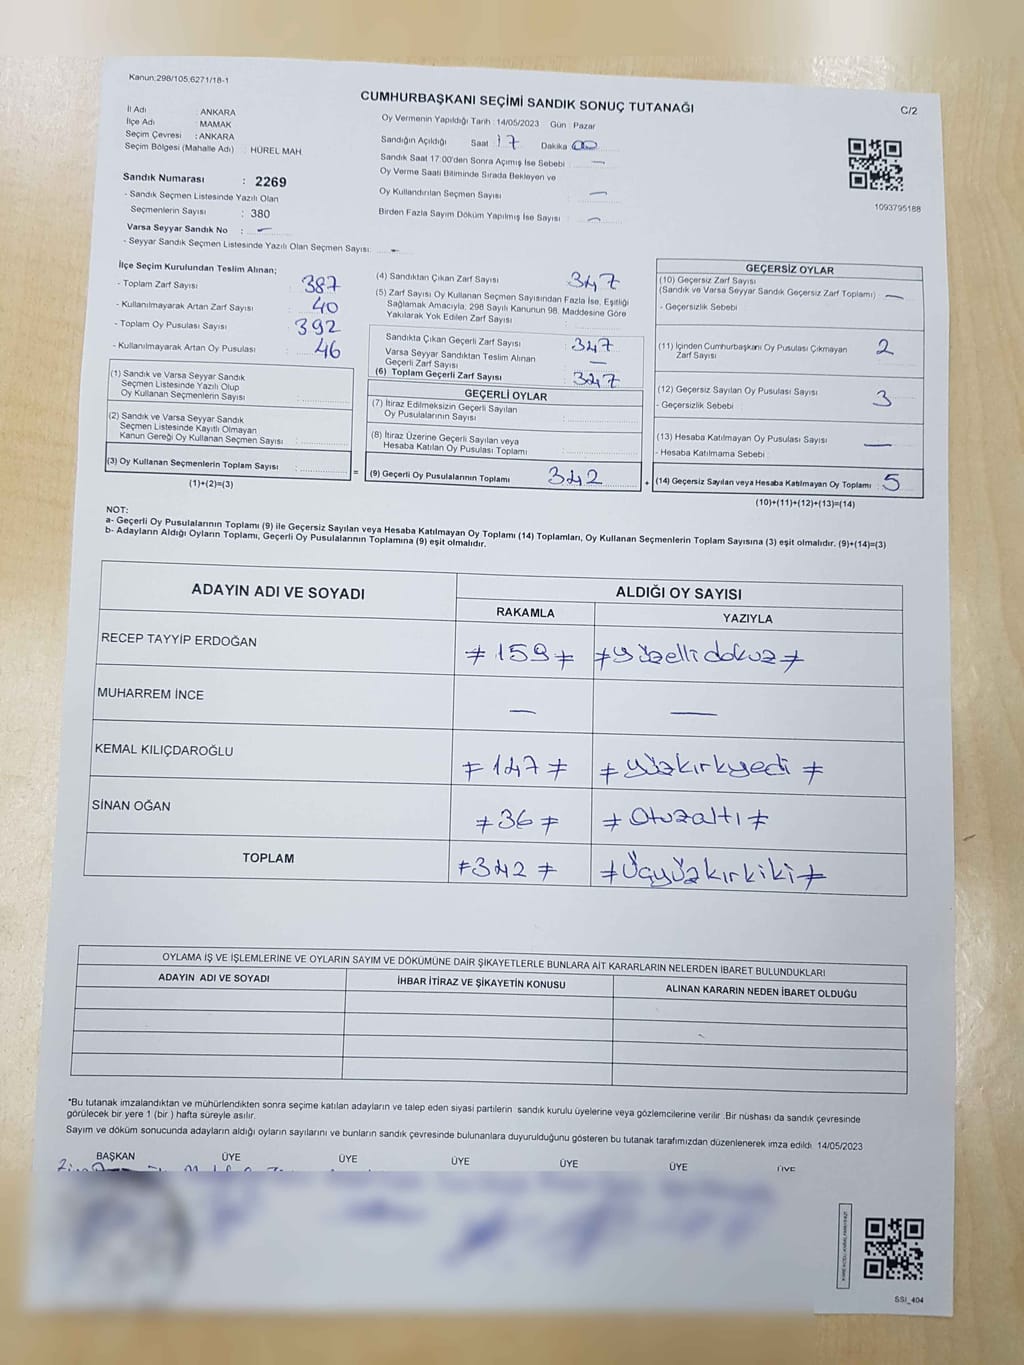 Kanun:298/105,6271/18-1
CUMHURBAŞKANI SEÇİMİ SANDIK SONUÇ TUTANAĞI
C/2
İl Adı : ANKARA
İlçe Adı : MAMAK
Seçim Çevresi : ANKARA
Seçim Bölgesi (Mahalle Adı) : HÜREL MAH.
Sandık Numarası : 2269
- Sandık Seçmen Listesinde Yazılı Olan
Seçmenlerin Sayısı : 380
Varsa Seyyar Sandık No : -
- Seyyar Sandık Seçmen Listesinde Yazılı Olan Seçmen Sayısı: -
Oy Vermenin Yapıldığı Tarih : 14/05/2023 Gün : Pazar
Sandığın Açıldığı Saat : 17 Dakika : 00
Sandık Saat 17:00'den Sonra Açımış İse Sebebi : -
Oy Verme Saati Bitiminde Sırada Bekleyen ve
Oy Kullandırılan Seçmen Sayısı : -
Birden Fazla Sayım Döküm Yapılmış İse Sayısı : -
1093795188
İlçe Seçim Kurulundan Teslim Alınan;
- Toplam Zarf Sayısı : 387
- Kullanılmayarak Artan Zarf Sayısı : 40
- Toplam Oy Pusulası Sayısı : 392
- Kullanılmayarak Artan Oy Pusulası : 46
(1) Sandık ve Varsa Seyyar Sandık
Seçmen Listesinde Yazılı Olup
Oy Kullanan Seçmenlerin Sayısı :
(2) Sandık ve Varsa Seyyar Sandık
Seçmen Listesinde Kayıtlı Olmayan
Kanun Gereği Oy Kullanan Seçmen Sayısı :
(3) Oy Kullanan Seçmenlerin Toplam Sayısı :
(1)+(2)=(3)
(4) Sandıktan Çıkan Zarf Sayısı : 347
(5) Zarf Sayısı Oy Kullanan Seçmen Sayısından Fazla İse, Eşitliği
Sağlamak Amacıyla, 298 Sayılı Kanunun 98. Maddesine Göre
Yakılarak Yok Edilen Zarf Sayısı :
Sandıkta Çıkan Geçerli Zarf Sayısı : 347
Varsa Seyyar Sandıktan Teslim Alınan
Geçerli Zarf Sayısı : -
(6) Toplam Geçerli Zarf Sayısı : 347
GEÇERLİ OYLAR
(7) İtiraz Edilmeksizin Geçerli Sayılan
Oy Pusulalarının Sayısı :
(8) İtiraz Üzerine Geçerli Sayılan veya
Hesaba Katılan Oy Pusulası Toplamı :
= (9) Geçerli Oy Pusulalarının Toplamı : 342
GEÇERSİZ OYLAR
(10) Geçersiz Zarf Sayısı
(Sandık ve Varsa Seyyar Sandık Geçersiz Zarf Toplamı) : -
- Geçersizlik Sebebi :
(11) İçinden Cumhurbaşkanı Oy Pusulası Çıkmayan
Zarf Sayısı : 2
(12) Geçersiz Sayılan Oy Pusulası Sayısı : 3
- Geçersizlik Sebebi :
(13) Hesaba Katılmayan Oy Pusulası Sayısı : -
- Hesaba Katılmama Sebebi :
+ (14) Geçersiz Sayılan veya Hesaba Katılmayan Oy Toplamı : 5
(10)+(11)+(12)+(13)=(14)
NOT:
a- Geçerli Oy Pusulalarının Toplamı (9) ile Geçersiz Sayılan veya Hesaba Katılmayan Oy Toplamı (14) Toplamları, Oy Kullanan Seçmenlerin Toplam Sayısına (3) eşit olmalıdır. (9)+(14)=(3)
b- Adayların Aldığı Oyların Toplamı, Geçerli Oy Pusulalarının Toplamına (9) eşit olmalıdır.
ADAYIN ADI VE SOYADI
ALDIĞI OY SAYISI
RAKAMLA YAZIYLA
RECEP TAYYİP ERDOĞAN ≠ 159 ≠ ≠ yüzellidokuz ≠
MUHARREM İNCE - -
KEMAL KILIÇDAROĞLU ≠ 147 ≠ ≠ yüzkırkyedi ≠
SİNAN OĞAN ≠ 36 ≠ ≠ Otuzaltı ≠
TOPLAM ≠ 342 ≠ ≠ Üçyüzkırkiki ≠
OYLAMA İŞ VE İŞLEMLERİNE VE OYLARIN SAYIM VE DÖKÜMÜNE DAİR ŞİKAYETLERLE BUNLARA AİT KARARLARIN NELERDEN İBARET BULUNDUKLARI
ADAYIN ADI VE SOYADI İHBAR İTİRAZ VE ŞİKAYETİN KONUSU ALINAN KARARIN NEDEN İBARET OLDUĞU
*Bu tutanak imzalandıktan ve mühürlendikten sonra seçime katılan adayların ve talep eden siyasi partilerin sandık kurulu üyelerine veya gözlemcilerine verilir. Bir nüshası da sandık çevresinde
görülecek bir yere 1 (bir ) hafta süreyle asılır.
Sayım ve döküm sonucunda adayların aldığı oyların sayılarını ve bunların sandık çevresinde bulunanlara duyurulduğunu gösteren bu tutanak tarafımızdan düzenlenerek imza edildi. 14/05/2023
BAŞKAN ÜYE ÜYE ÜYE ÜYE ÜYE ÜYE
SSI_404